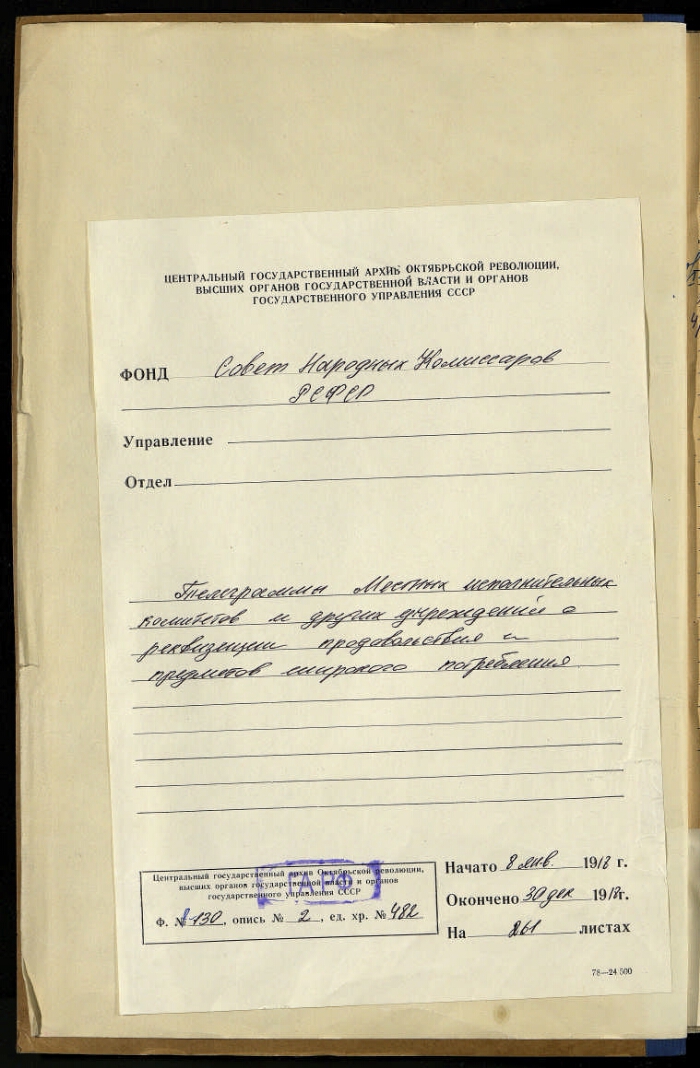 ЦЕНТРАЛЬНЫЙ ГОСУДАРСТВЕННЫЙ АРХИВ ОКТЯБРЬСКОЙ РЕВОЛЮЦИИ,
ВЫСШИХ ОРГАНОВ ГОСУДАРСТВЕННОЙ ВЛАСТИ И ОРГАНОВ
ГОСУДАРСТВЕННОГО УПРАВЛЕНИЯ СССР
ФОНД Совет Народных Комиссаров
РСФСР
Управление
Отдел
Телеграммы Местных исполнительных
комитетов и других учреждений о
реквизиции продовольствия и
предметов широкого потребления.
Центральный государственный архив Октябрьской революции,
высших органов государственной власти и органов
государственного управления СССР
ГАРФ
Ф. № 130, опись № 2, ед. хр. № 482
Начато 8 янв. 1918 г.
Окончено 30 дек 1918 г.
На 261 листах
78—24 500